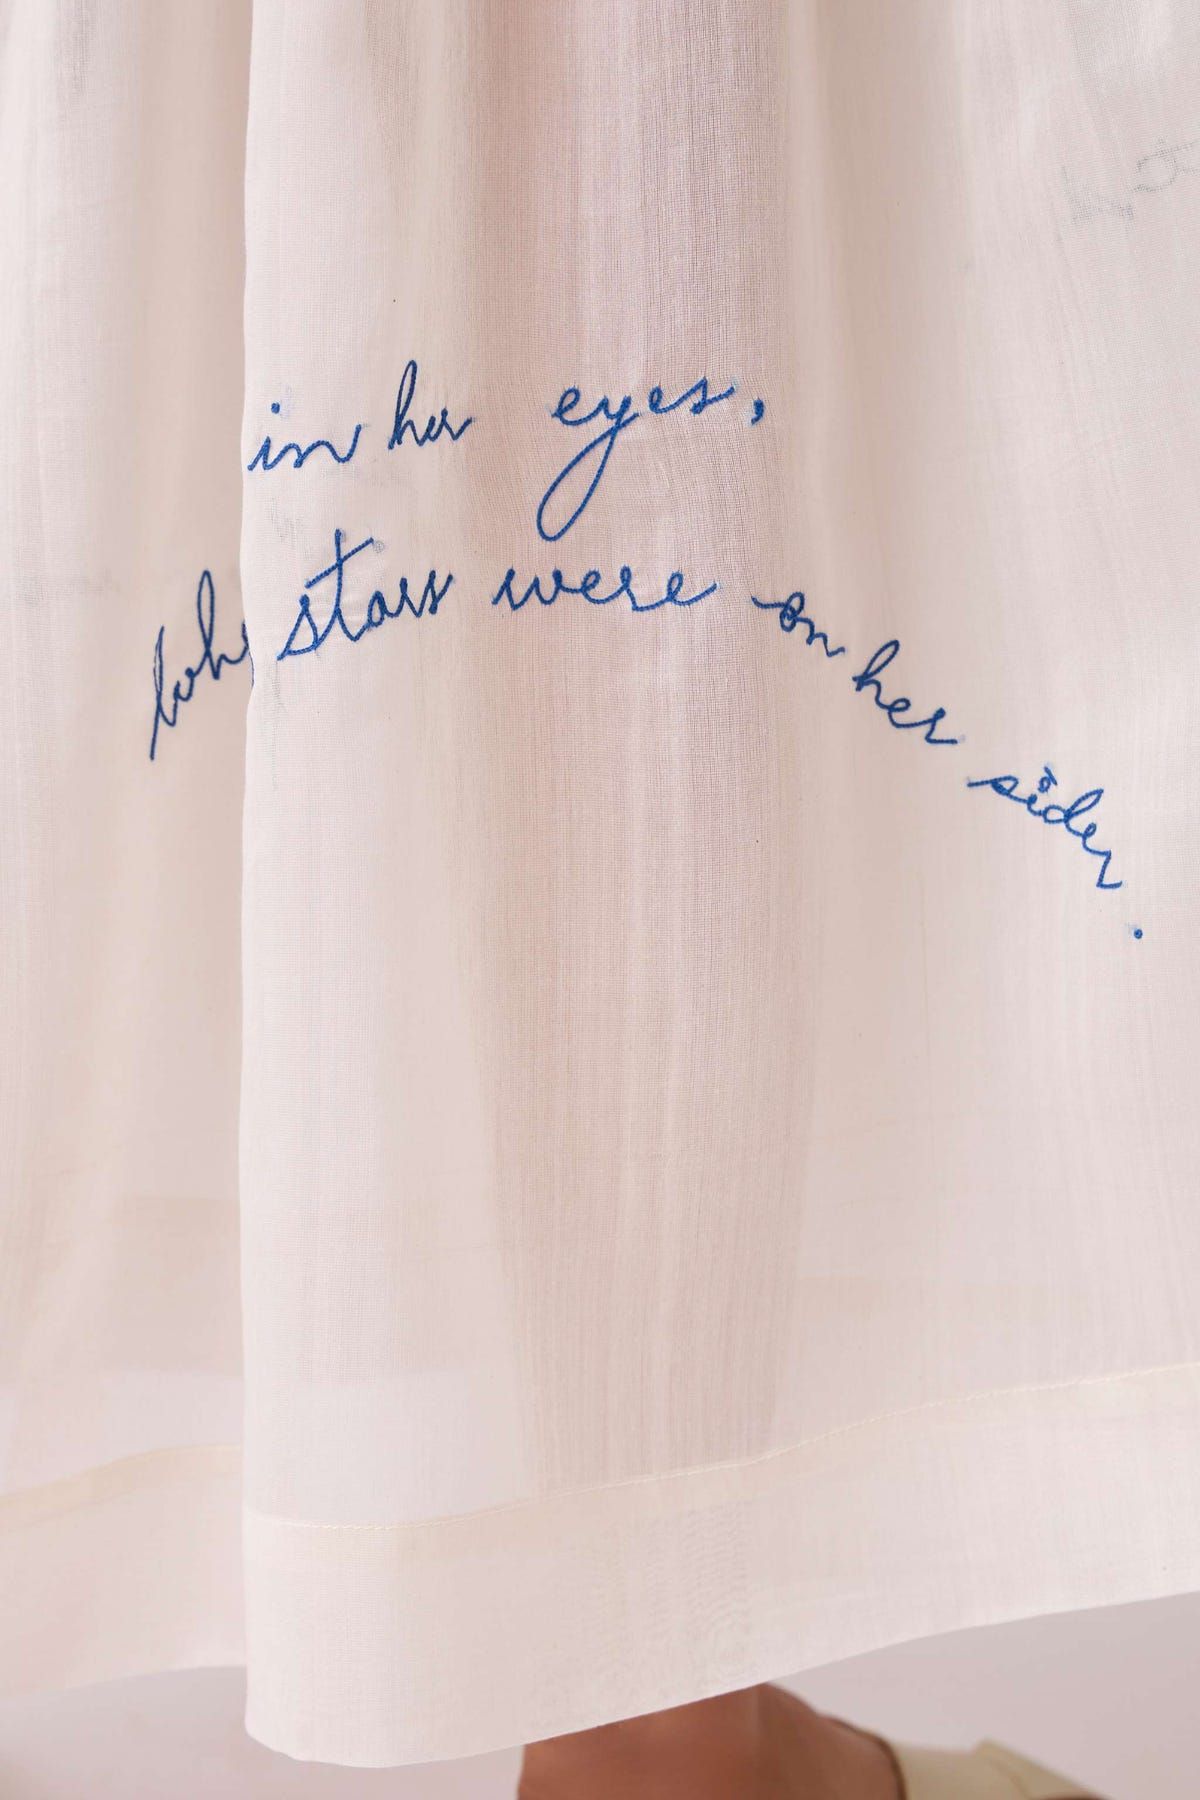 in her eyes,
stars were on her side.